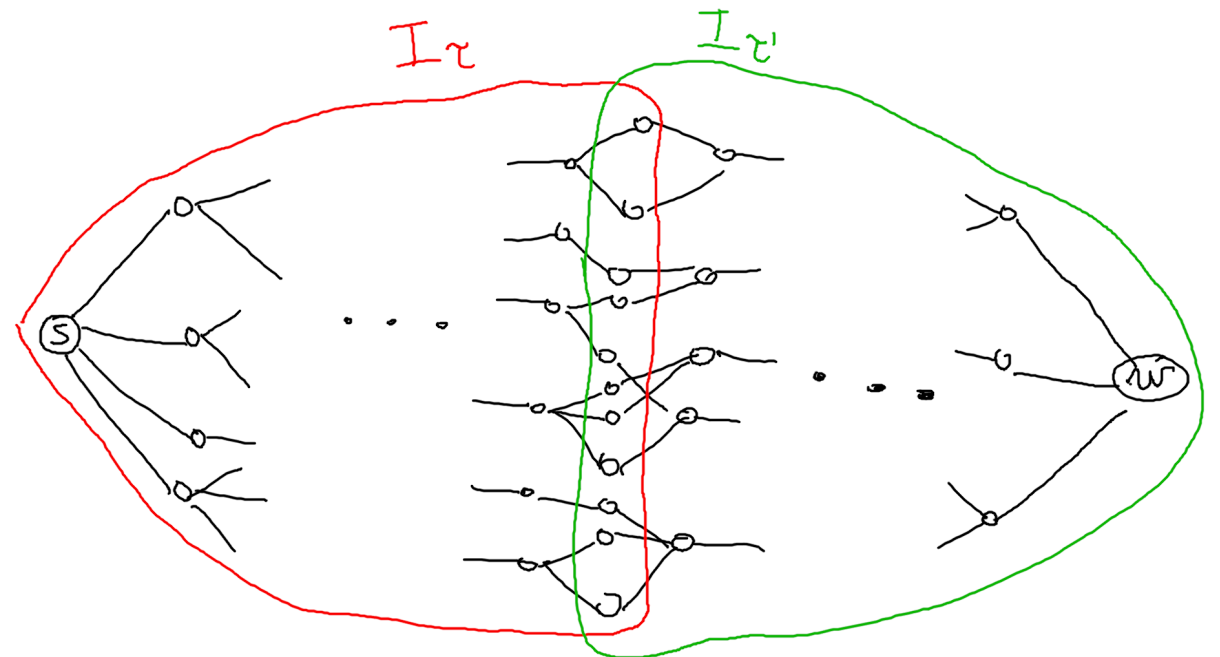 I_τ
I_τ'
S
W